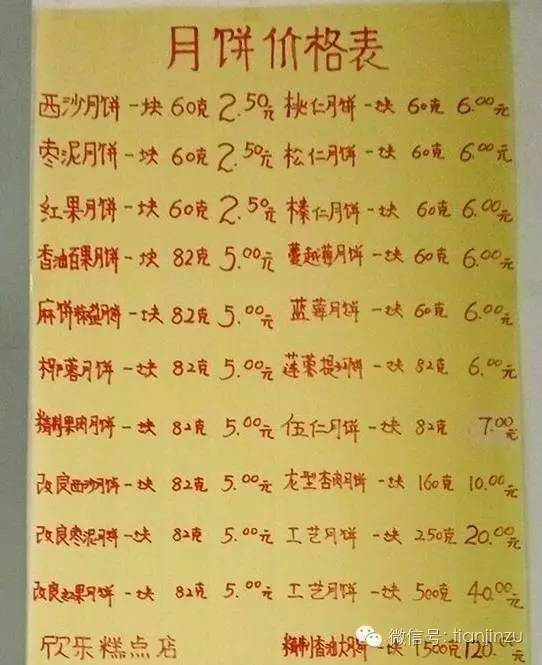 月饼价格表
西沙月饼一块 60克 2.50元 桃仁月饼一块 60克 6.00元
枣泥月饼一块 60克 2.50元 松仁月饼一块 60克 6.00元
红果月饼一块 60克 2.50元 榛仁月饼一块 60克 6.00元
香油百果月饼一块 82克 5.00元 蔓越莓月饼一块 60克 6.00元
麻饼椒盐月饼一块 82克 5.00元 蓝莓月饼一块 60克 6.00元
椰蓉月饼一块 82克 5.00元 莲蓉提江月饼一块 82克 6.00元
精制果肉月饼一块 82克 5.00元 伍仁月饼一块 82克 7.00元
改良西沙月饼一块 82克 5.00元 龙型枣肉月饼一块 160克 10.00元
改良枣泥月饼一块 82克 5.00元 工艺月饼一块 250克 20.00元
改良红果月饼一块 82克 5.00元 工艺月饼一块 500克 40.00元
欣乐糕点店 精制香油大月饼一块 1500克 120.00
微信号: tianjinzu